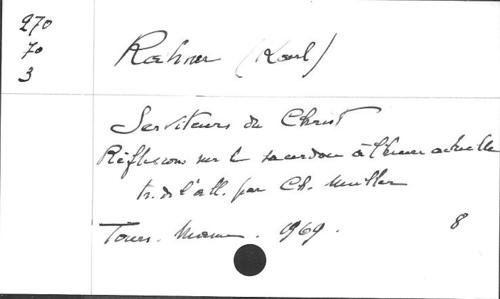 270
70
3
Rahner (Karl)
Serviteurs du Christ
Réflexions sur le sacerdoce à l'heure actuelle
tr. de l'all. par Ch. Muller
Tours. Mame. 1969. 8